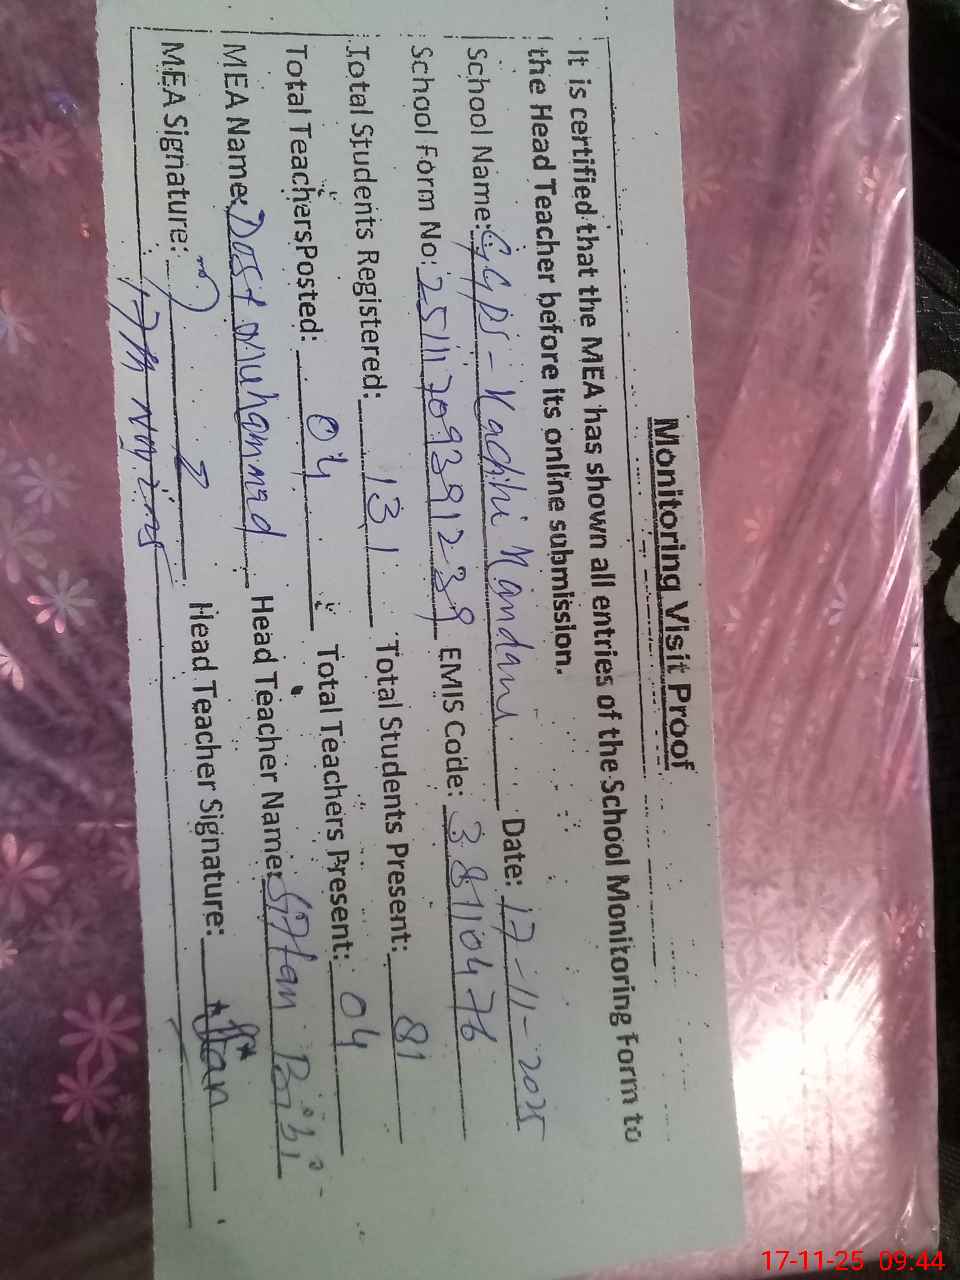 Monitoring Visit Proof
It is certified that the MEA has shown all entries of the School Monitoring Form to
the Head Teacher before its online submission.
School Name: GGPS - Kachhi Kandani Date: 17-11-2025
School Form No: 25111709391239 EMIS Code: 38110476
Total Students Registered: 131 Total Students Present: 81
Total Teachers Posted: 04 Total Teachers Present: 04
MEA Name: Dost Muhammad Head Teacher Name: Bibi
MEA Signature: Head Teacher Signature:
17-11-25 09:44